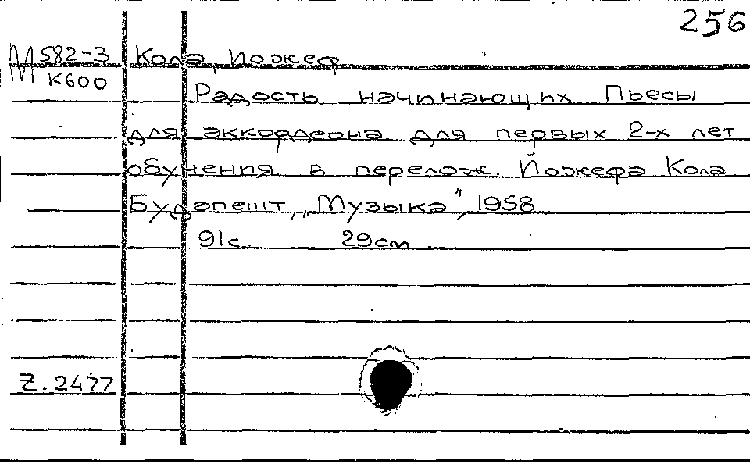 256
М 582-3 Кола, Йожеф
К600
Радость начинающих Пьесы
для аккордеона для первых 2-х лет
обучения в перелож. Йожефа Кола
Будапешт, „Музыка", 1958
91с 29см
Z.2477